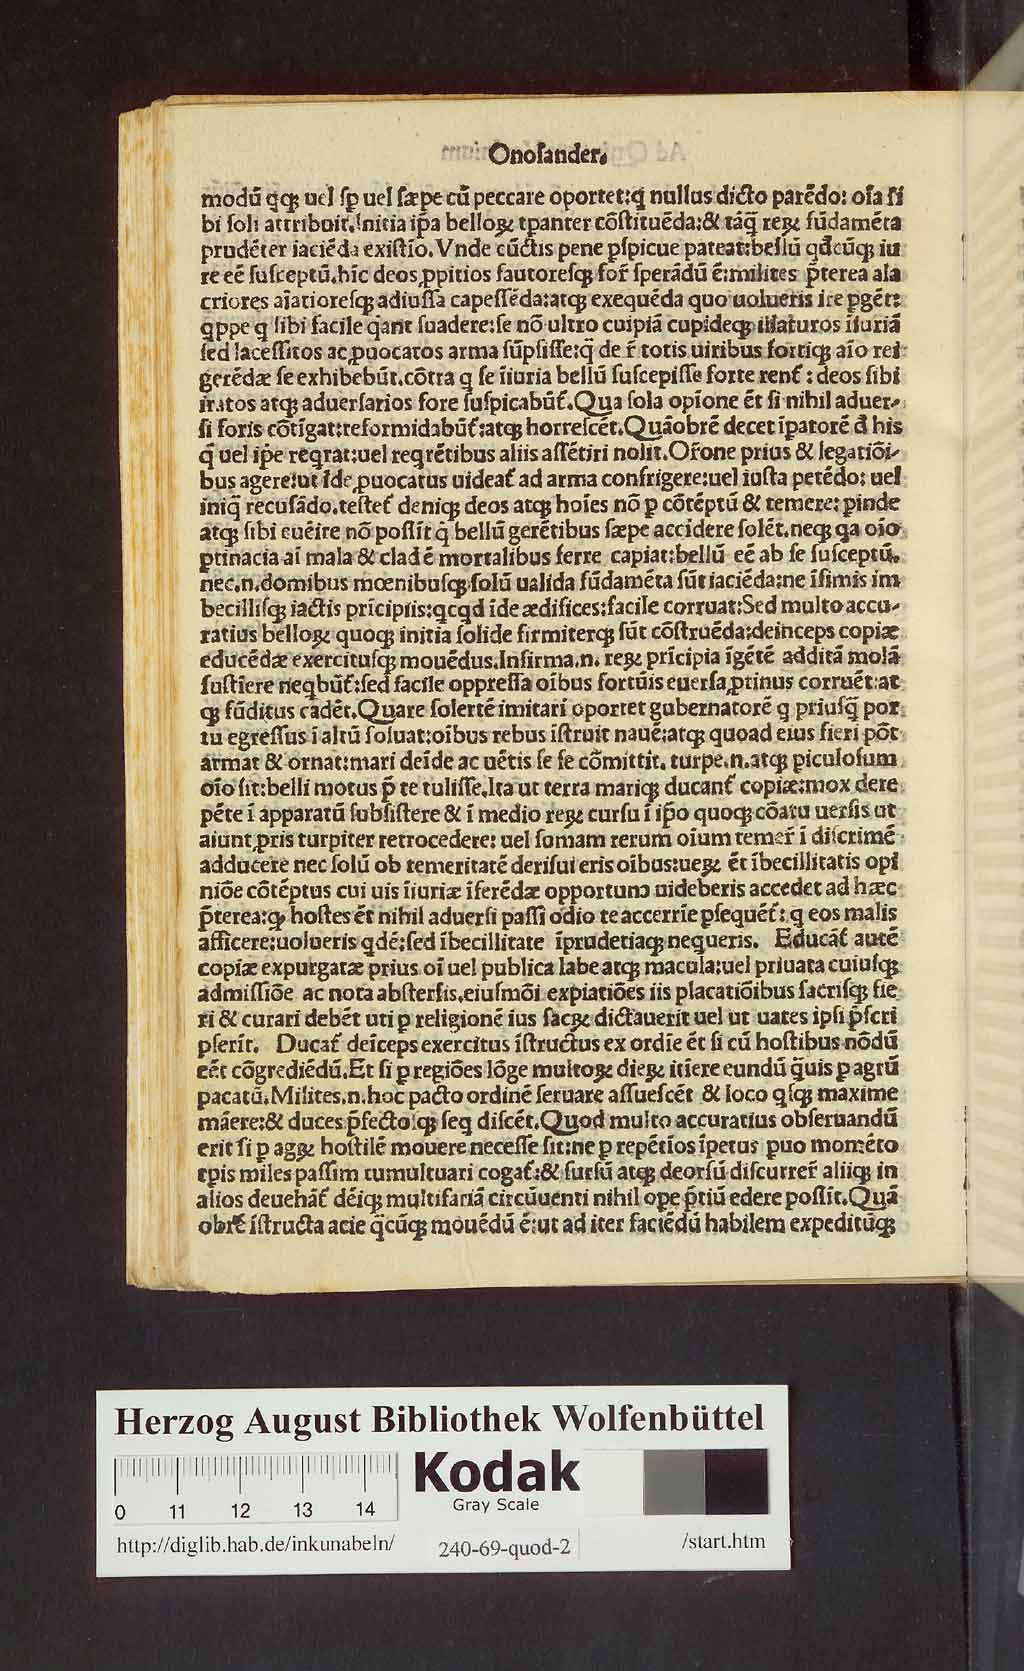 Onoſander.
modū qꝗ uel ſꝑ uel ſæpe cū peccare oportet: nullus dicto parēdo: oīa ſi
bi ſoli attribuit. Initia ip̄a belloꝝ tpanter cōſtituēda:& tāq̄ reꝝ fūdamēta
prudēter iaciēda exiſtīo. Vnde cūctis pene pſpicue pateat:bellū qđcūqꝫ iu
re eē ſuſceptū. hīc deos ꝓpitios fautoreſqꝫ for̄ ſperādū ē: milites p̄terea ala
criores aīatioreſqꝫ adiuſſa capeſſēda:atqꝫ exequēda quo uolueris ire pgēt:
qppe q ſibi facile q̄ant ſuadere:ſe nō ultro cuipiā cupideqꝫ illaturos īiuriā
ſed laceſſitos ac ꝓuocatos arma ſūpſiſſe:q̄ de r̄ totis uiribus fortiqꝫ aīo rei
gerēdæ ſe exhibebūt. cōtra q ſe īiuria bellū ſuſcepiſſe forte renť : deos ſibi
iratos atqꝫ aduerſarios fore ſuſpicabūť. Qua ſola opīone ēt ſi nihil aduer-
ſi foris cōtīgat:reformidabūť:atqꝫ horreſcēt. Quāobrē decet īpatorē đ his
q̄ uel ip̄e reqrat:uel reqrētibus aliis aſſētiri nolit. Or̄one prius & legatiōi-
bus agere:ut īde ꝓuocatus uideať ad arma confrigere:uel iuſta petēdo: uel
iniq̄ recuſādo. teſteť deniqꝫ deos atqꝫ hoīes nō ꝑ cōtēptū & temere: pinde
atqꝫ ſibi euēire nō poſſīt q̄ bellū gerētibus ſæpe accidere ſolēt. neqꝫ qa oīo
ptinacia aī mala & cladē mortalibus ferre capiat:bellū eē ab ſe ſuſceptū.
nec.n.domibus mœnibuſqꝫ ſolū ualida fūdamēta ſūt iaciēda:ne īfimis im
becilliſqꝫ iactis prīcipiis:qcqd īde ædifices:facile corruat:Sed multo accu-
ratius belloꝝ quoqꝫ initia ſolide firmiterqꝫ ſūt cōſtruēda:deinceps copiæ
educēdæ exercituſqꝫ mouēdus. Infirma.n. reꝝ prīcipia īgētē additā molā
ſuſtīere neqbūť:ſed facile oppreſſa oībus fortūis euerſa ꝓtinus corruēt:at
qꝫ fūditus cadēt. Quare ſolertē imitari oportet gubernatorē q priuſq̄ por
tu egreſſus ī altū ſoluat:oībus rebus īſtruit nauē:atqꝫ quoad eius fieri pōt
armat & ornat:mari deīde ac uētis ſe ſe cōmittit. turpe.n.atqꝫ piculoſum
oīo ſit:belli motus p̄ te tuliſſe. Ita ut terra mariqꝫ ducanť copiæ:mox dere
pēte ī apparatū ſubſiſtere & ī medio reꝝ curſu ī ip̄o quoqꝫ cōatu uerſis ut
aiunt ꝓris turpiter retrocedere: uel ſomam rerum oīum temer̄ ī diſcrimē
adducere nec ſolū ob temeritatē deriſui eris oībus:ueꝝ ēt ībecillitatis opī
niōe cōtēptus cui uis īiuriæ īferēdæ opportunꝰ uideberis accedet ad hæc
p̄terea: hoſtes ēt nihil aduerſi paſſi odio te accerrīe pſequēť: q eos malis
afficere:uolueris qdē:ſed ībecillitate īprudētiaqꝫ nequeris. Educāť autē
copiæ expurgatæ prius oī uel publica labe atqꝫ macula:uel priuata cuiuſqꝫ
admiſſiōe ac nota abſterſis. eiuſmōi expiatiōes iis placatiōibus ſacriſqꝫ fie
ri & curari debēt uti ꝑ religionē ius ſacꝝ dictauerit uel ut uates ipſi p̄ſcri
pſerīt. Ducať deīceps exercitus īſtructus ex ordīe ēt ſi cū hoſtibus nōdū
eēt cōgrediēdū. Et ſi ꝑ regiōes lōge multoꝝ dieꝝ itīere eundū q̄uis ꝑ agrū
pacatū. Milites.n.hoc pacto ordinē ſeruare aſſueſcēt & loco qſqꝫ maxime
māere:& duces p̄fectoſqꝫ ſeq diſcēt. Quod multo accuratius obſeruandū
erit ſi ꝑ agꝝ hoſtilē mouere neceſſe ſit:ne ꝑ repētīos īpetus puo momēto
tpis miles paſſim tumultuari cogať:& ſurſū atqꝫ deorſū diſcurrer̄ aliiqꝫ in
alios deuehāť dēiqꝫ multifariā circūuenti nihil ope p̄tiū edere poſſīt. Quā
obrē īſtructa acie q̄cūqꝫ mouēdū ē:ut ad iter faciēdū habilem expeditūqꝫ
Herzog August Bibliothek Wolfenbüttel
Kodak
Gray Scale
0 11 12 13 14
http://diglib.hab.de/inkunabeln/ 240-69-quod-2 /start.htm